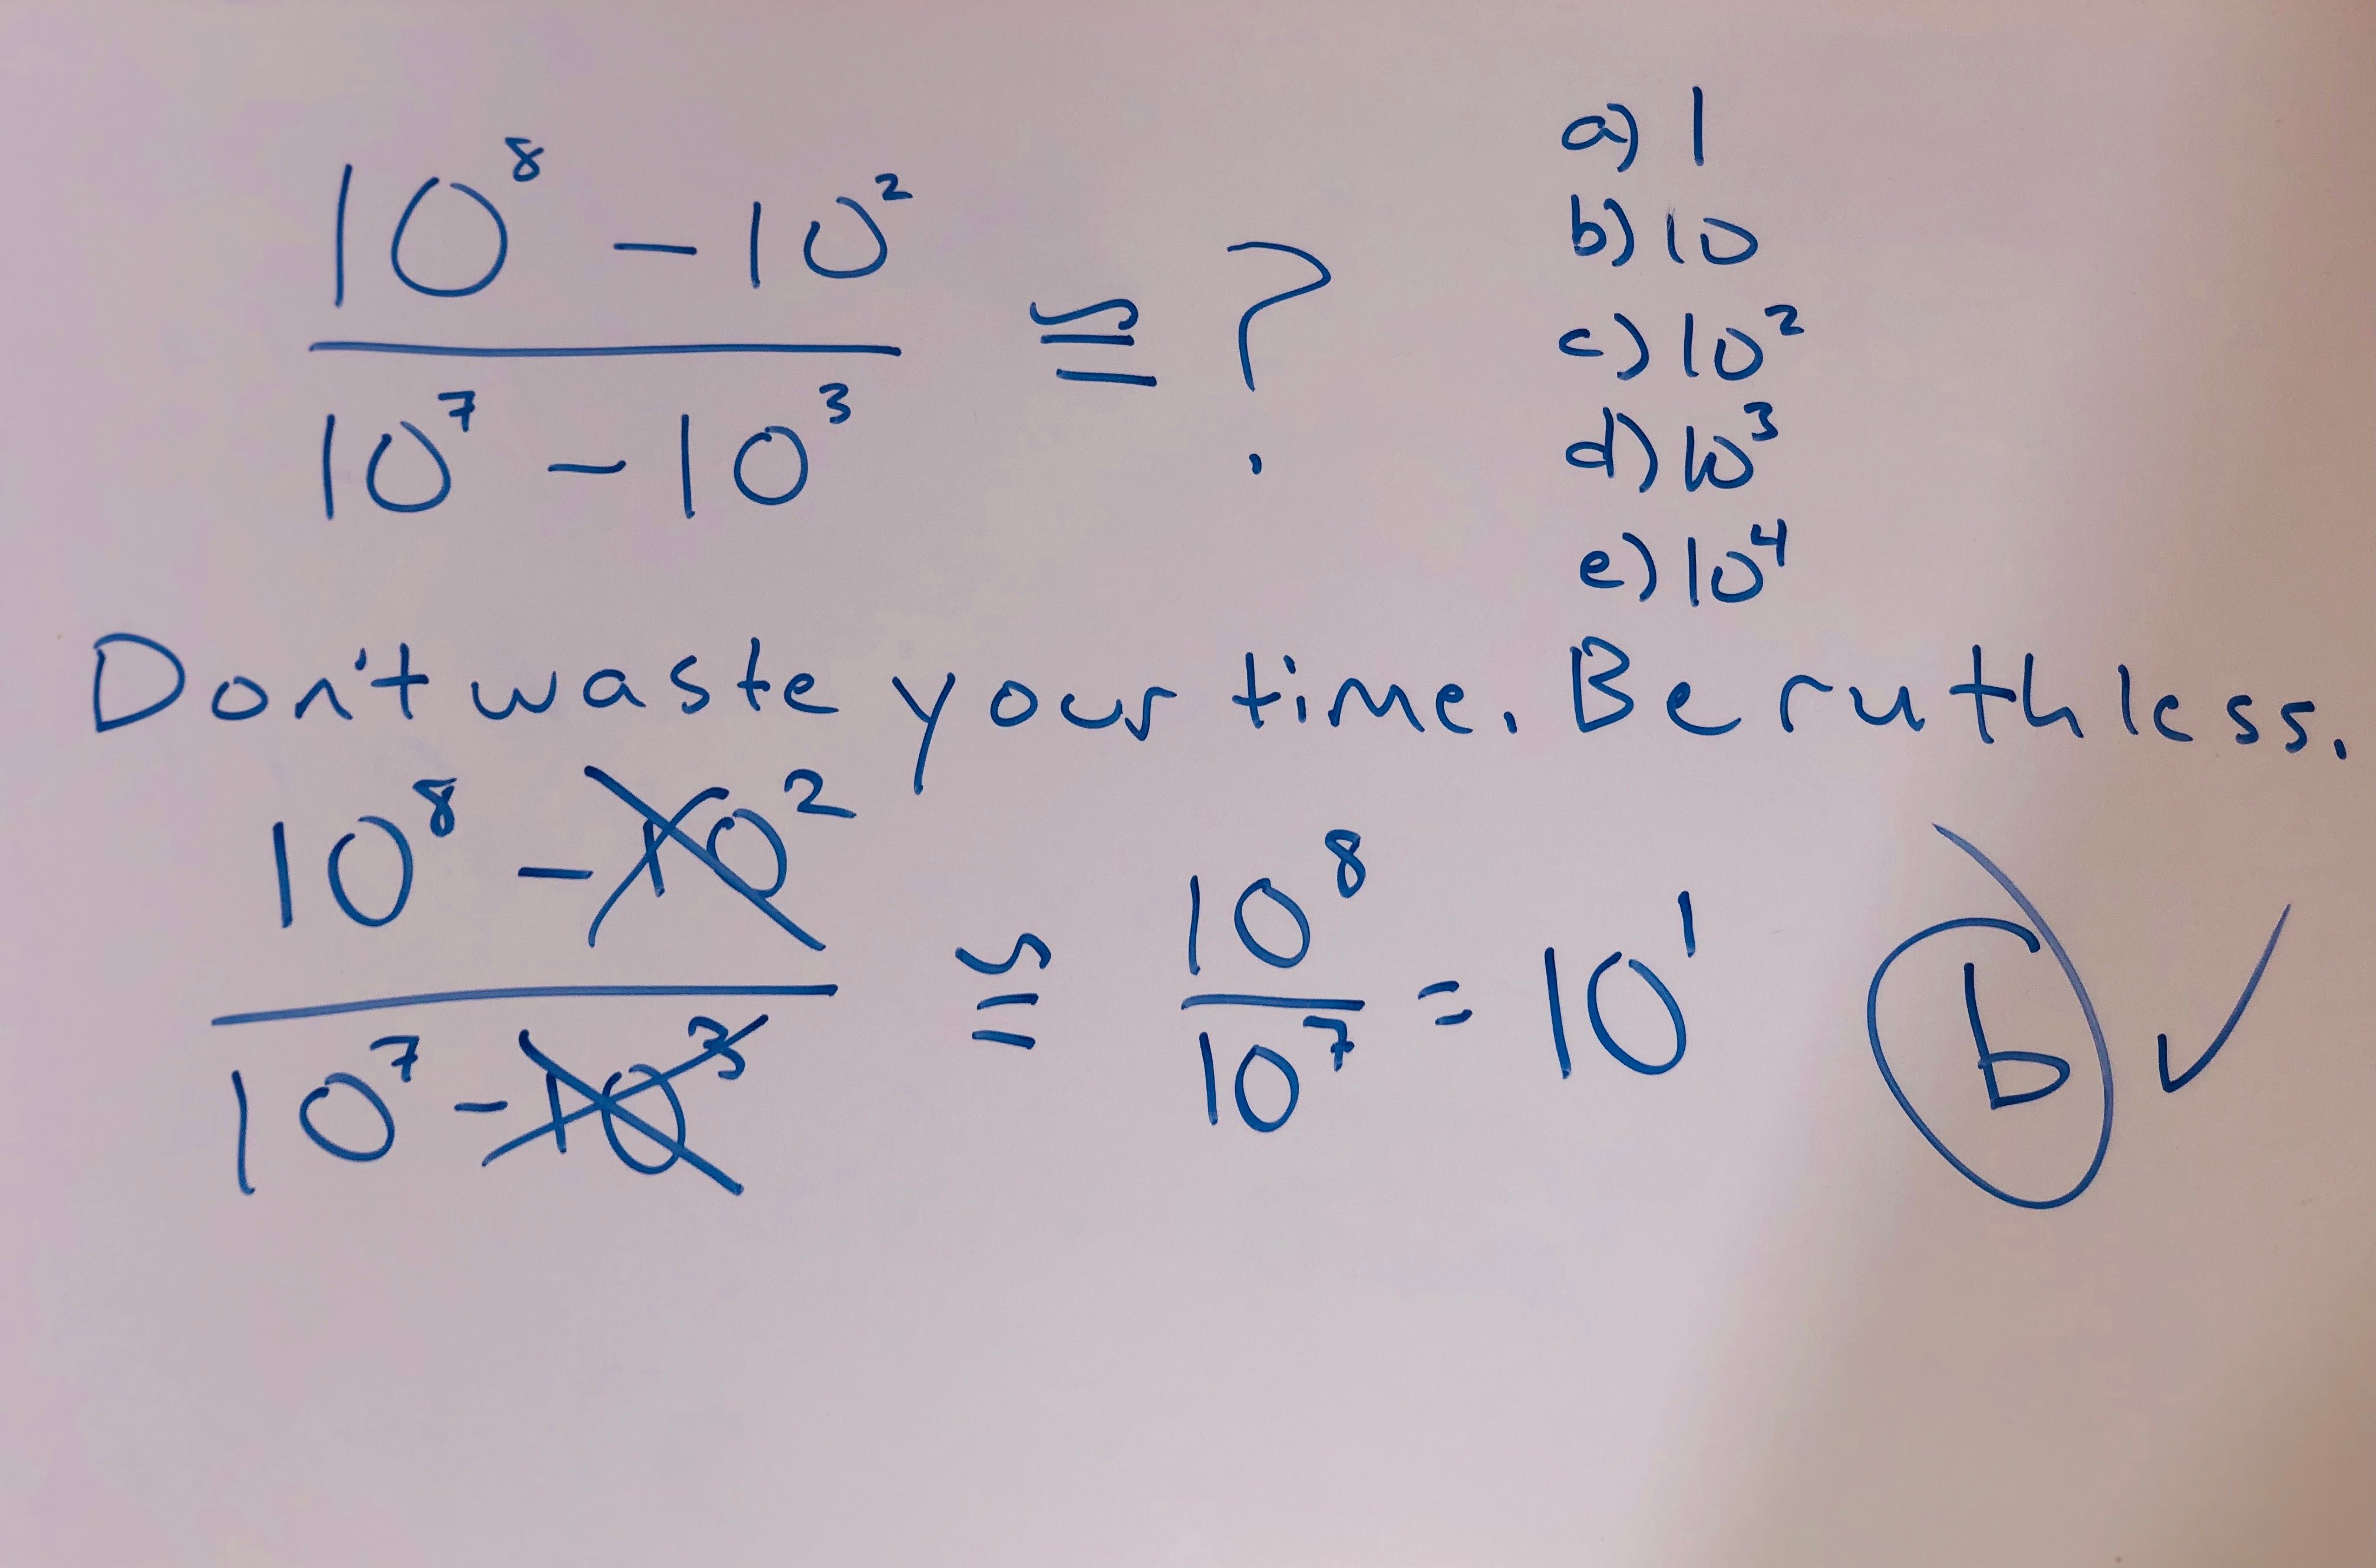 10⁸ − 10²
―――――――― ≅ ?
10⁷ − 10³
a) 1
b) 10
c) 10²
d) 10³
e) 10⁴
Don't waste your time. Be ruthless.
10⁸ − 10²
―――――――― ≅ 10⁸ / 10⁷ = 10¹ b ✓
10⁷ − 10³